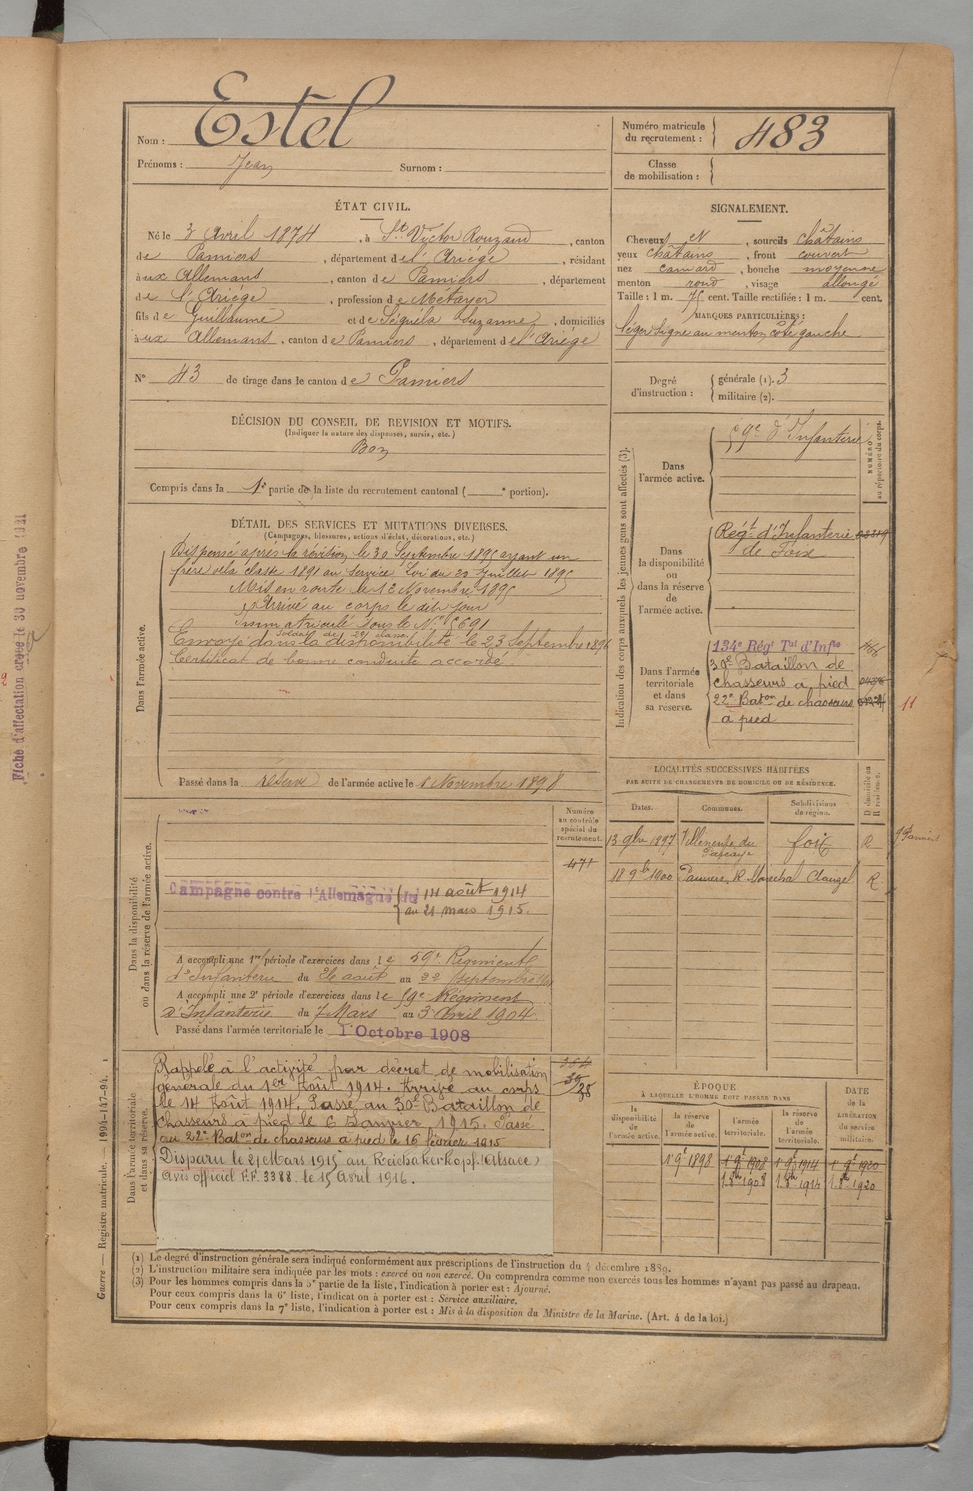 Nom : Estel
Prénoms : Jean Surnom :
Numéro matricule du recrutement : 483
Classe de mobilisation :
ÉTAT CIVIL.
Né le 3 Avril 1874, à St Victor Rouzaud, canton
de Pamiers, département de l'Ariège, résidant
aux Allemans, canton de Pamiers, département
de l'Ariège, profession de Métayer
fils de Guillaume et de Séguéla Suzanne, domiciliés
aux Allemans, canton de Pamiers, département de l'Ariège
N° 43 de tirage dans le canton de Pamiers
SIGNALEMENT.
Cheveux et, sourcils châtains
yeux châtains, front couvert
nez camard, bouche moyenne
menton rond, visage allongé
Taille : 1 m. 75 cent. Taille rectifiée : 1 m. cent.
MARQUES PARTICULIÈRES :
léger signe au menton côté gauche
Degré d'instruction : générale (1). 3
militaire (2).
DÉCISION DU CONSEIL DE REVISION ET MOTIFS.
(Indiquer la nature des dispenses, sursis, etc.)
Bon
Compris dans la 1e partie de la liste du recrutement cantonal ( e portion).
DÉTAIL DES SERVICES ET MUTATIONS DIVERSES.
(Campagnes, blessures, actions d'éclat, décorations, etc.)
Dans l'armée active.
Dispensé après la révision, le 30 Septembre 1895 ayant un
frère de la classe 1891 au Service. Loi du
Mis en route le 12 Novembre 1895
Arrivé au corps le dit jour
Immatriculé sous le N°
Soldat de 2e classe
Envoyé dans la disponibilité le 23 Septembre 1896
Certificat de bonne conduite accordé
Passé dans la réserve de l'armée active le 1 Novembre 1898
Indication des corps auxquels les jeunes gens sont affectés (3).
NUMÉRO au répertoire du corps.
Dans l'armée active.
59e d'Infanterie
Dans la disponibilité ou dans la réserve de l'armée active.
Régt d'Infanterie
de Foix
Dans l'armée territoriale et dans sa réserve.
134e Régt Tal d'Infie
30e Bataillon de
chasseurs à pied
22e Baton de chasseurs
à pied
11
LOCALITÉS SUCCESSIVES HABITÉES
PAR SUITE DE CHANGEMENTS DE DOMICILE OU DE RÉSIDENCE.
Dates. Communes. Subdivisions de région. D domicile ou R résidence.
13 9bre 1897 Villeneuve du Paréage foix R
18 9bre 1900 Pamiers, R. Maréchal Clauzel R
Dans la disponibilité ou dans la réserve de l'armée active.
Numéro au contrôle spécial du recrutement.
471
Campagne contre l'Allemagne du 14 août 1914
au 21 mars 1915.
A accompli une 1re période d'exercices dans le 59e Régiment
d'Infanterie du 26 août au 22 Septembre
A accompli une 2e période d'exercices dans le 59e Régiment
d'Infanterie du 7 Mars au 3 Avril 1904
Passé dans l'armée territoriale le 1 Octobre 1908
Dans l'armée territoriale et dans sa réserve.
Rappelé à l'activité par décret de mobilisation
générale du 1er Août 1914. Arrivé au corps
le 14 Août 1914. Passé au 30e Bataillon de
chasseurs à pied le 6 Janvier 1915. Passé
au 22e Baton de chasseurs à pied le 16 février 1915
Disparu le 21 Mars 1915 au Reichakerkopf. (Alsace)
Avis officiel F.F. 3388. le 15 Avril 1916.
ÉPOQUE
À LAQUELLE L'HOMME DOIT PASSER DANS
la disponibilité de l'armée active. la réserve de l'armée active. l'armée territoriale. la réserve de l'armée territoriale. DATE de la LIBÉRATION du service militaire.
1 9t 1898 1 9t 1908 1 9t 1914 1 9t 1920
1.8bre 1908 1.8bre 1914 1.8bre 1920
(1) Le degré d'instruction générale sera indiqué conformément aux prescriptions de l'instruction du 4 décembre 1889.
(2) L'instruction militaire sera indiquée par les mots : exercé ou non exercé. On comprendra comme non exercés tous les hommes n'ayant pas passé au drapeau.
(3) Pour les hommes compris dans la 5e partie de la liste, l'indication à porter est : Ajourné.
Pour ceux compris dans la 6e liste, l'indication à porter est : Service auxiliaire.
Pour ceux compris dans la 7e liste, l'indication à porter est : Mis à la disposition du Ministre de la Marine. (Art. 4 de la loi.)
Guerre — Registre matricule. — 1994-147-94.
Fiche d'affectation créée le 30 novembre 1921